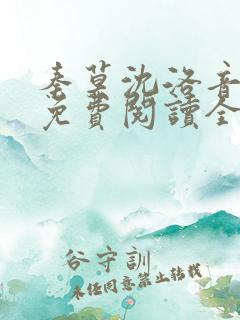 秦墓沈洛音
免費閱讀全
谷守訓
未经同意禁止转载